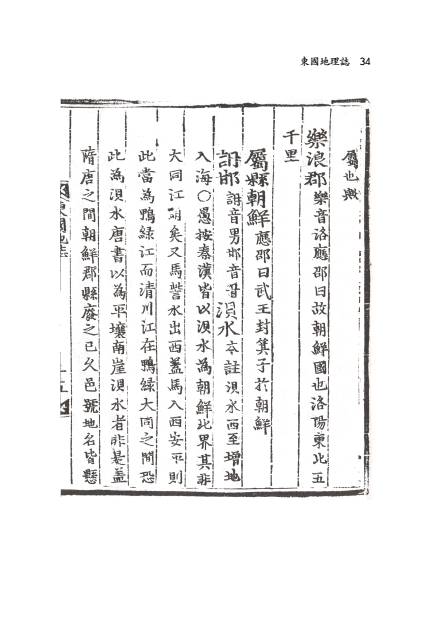 東國地理誌 34
屬也歟
樂浪郡樂音洛應邵曰故朝鮮國也洛陽東北五
千里
屬縣朝鮮應邵曰武王封箕子於朝鮮
䛁邯䛁音男邯音甘浿水本註浿水西至增地
入海○愚按秦漢皆以浿水爲朝鮮北界其非
大同江明矣又馬訾水出西蓋馬入西安平則
此當爲鴨綠江而清川江在鴨綠大同之間恐
此爲浿水唐書以爲平壤南崖浿水者非是蓋
隋唐之間朝鮮郡縣廢之已久邑號地名皆懸